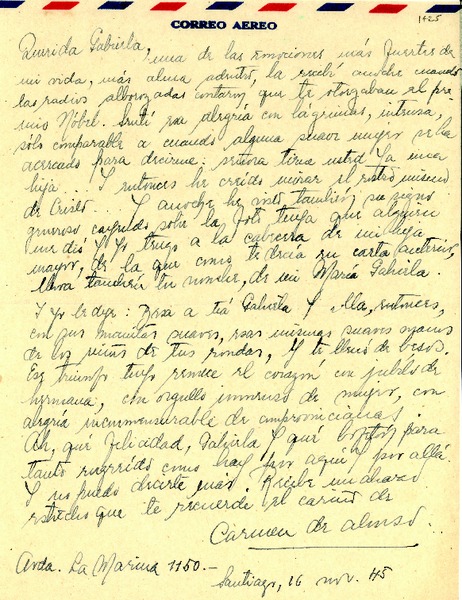 1425
CORREO AEREO
Querida Gabriela,
una de las emociones más fuertes de
mi vida, más alma adentro, la recibí anoche cuando
las radios alborozadas contaron que te otorgaban el pre-
mio Nóbel. Sentí esa alegría con lágrimas, intensa,
sólo comparable a cuando alguna suave mujer se ha
acercado para decirme: señora tiene usted ya una
hija... Y entonces he creído mirar el rostro mismo
de Cristo... Y anoche he visto también, su signo
generoso sobre la foto tuya que alguien
me dió y yo tengo a la cabecera de mi hija
mayor, de la que como te decía en carta anterior,
lleva también tu nombre, de mi María Gabriela.
Y yo le dije: Besa a tía Gabriela y ella, entonces,
con sus manitas suaves, esas mismas suaves manos
de los niños de tus rondas, y te llenó de besos.
Ese triunfo tuyo remece el corazón con júbilo de
hermana, con orgullo inmenso de mujer, con
alegría inconmensurable de comprovinciana!
Ah, qué felicidad, Gabriela y qué para
tanto como hay por aquí y por allá.
Y no puedo decirte más. Recibe un abrazo
estrecho que te recuerde el cariño de
Carmen de Alonso.
Avda. La Marina 1150.—
Santiago, 16 nov. 45